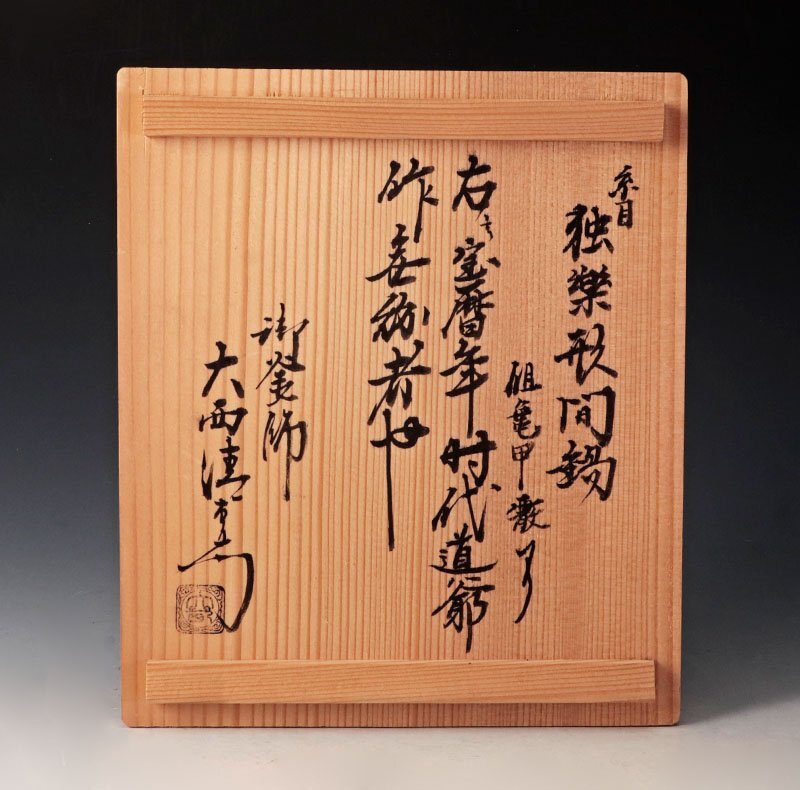 糸目
独樂形間鍋
但亀甲霰アリ
右ハ宝暦年時代道爺
作無紛者也
御釜師
大西清右衛門